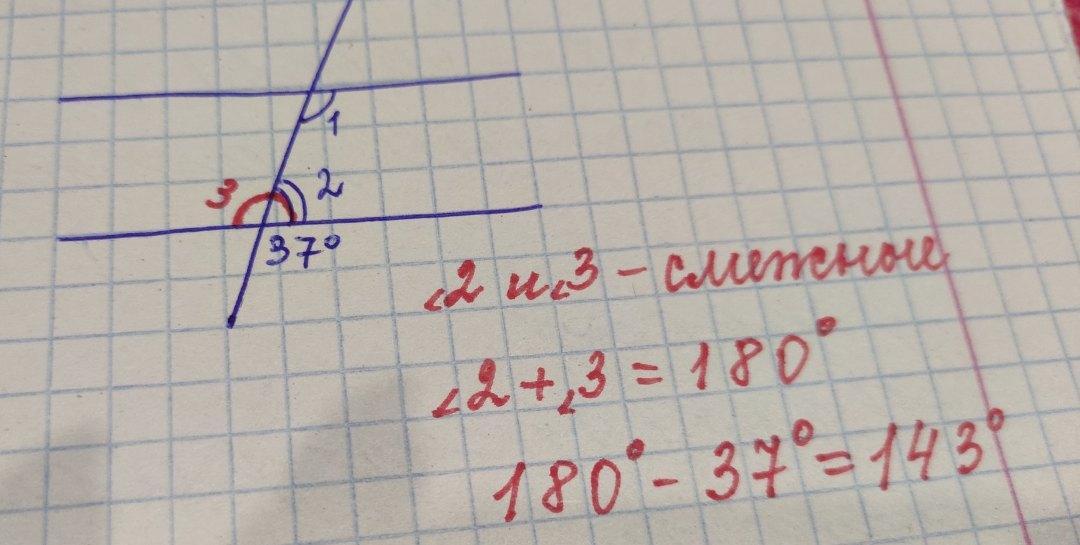 1
3 2
37°
∠2 и ∠3 - смежные
∠2 + ∠3 = 180°
180° - 37° = 143°